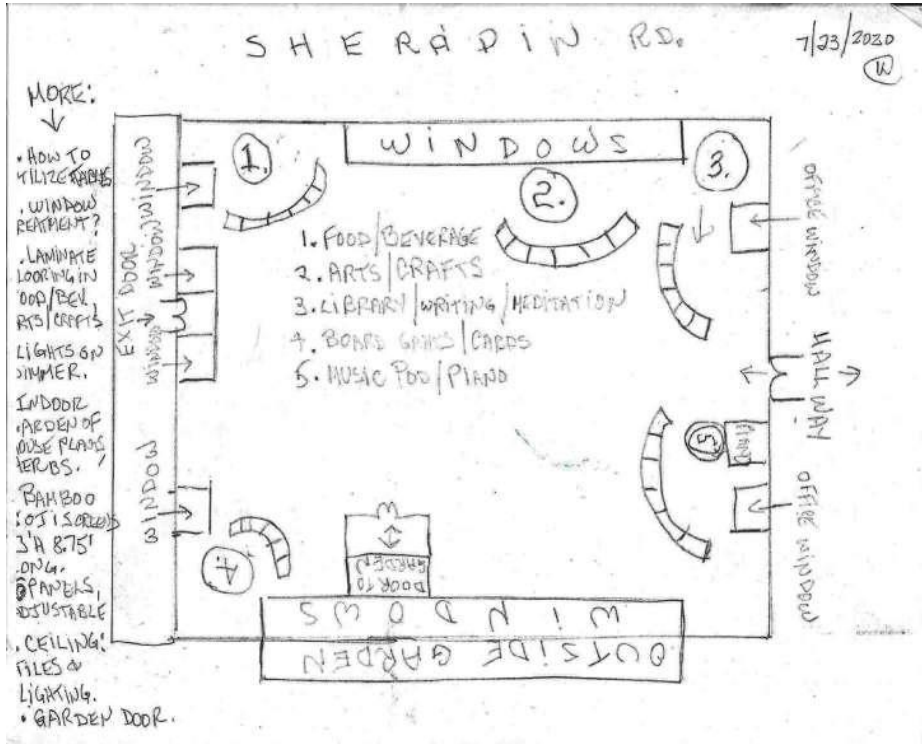 SHERADIN RD.
7/23/2020
W
MORE:
• HOW TO
TILIZE TABLES
• WINDOW
REATMENT?
• LAMINATE
LOORING IN
OOD/BEV,
RTS/CRAFTS
LIGHTS ON
DIMMER.
INDOOR
ARDEN OF
OUSE PLANTS
HERBS.
BAMBOO
SCREENS
3'H 8.75'
ONG.
PANELS,
DJUSTABLE
• CEILING:
TILES &
LIGHTING.
• GARDEN DOOR.
WINDOW
WINDOW
EXIT DOOR
WINDOW
WINDOW
1.
WINDOWS
2.
3.
OFFICE WINDOW
1. FOOD/BEVERAGE
2. ARTS/CRAFTS
3. LIBRARY/WRITING/MEDITATION
4. BOARD GAMES/CARDS
5. MUSIC POD/PIANO
HALLWAY
5
PIANO
OFFICE WINDOW
4.
DOOR TO
GARDEN
WINDOWS
OUTSIDE GARDEN